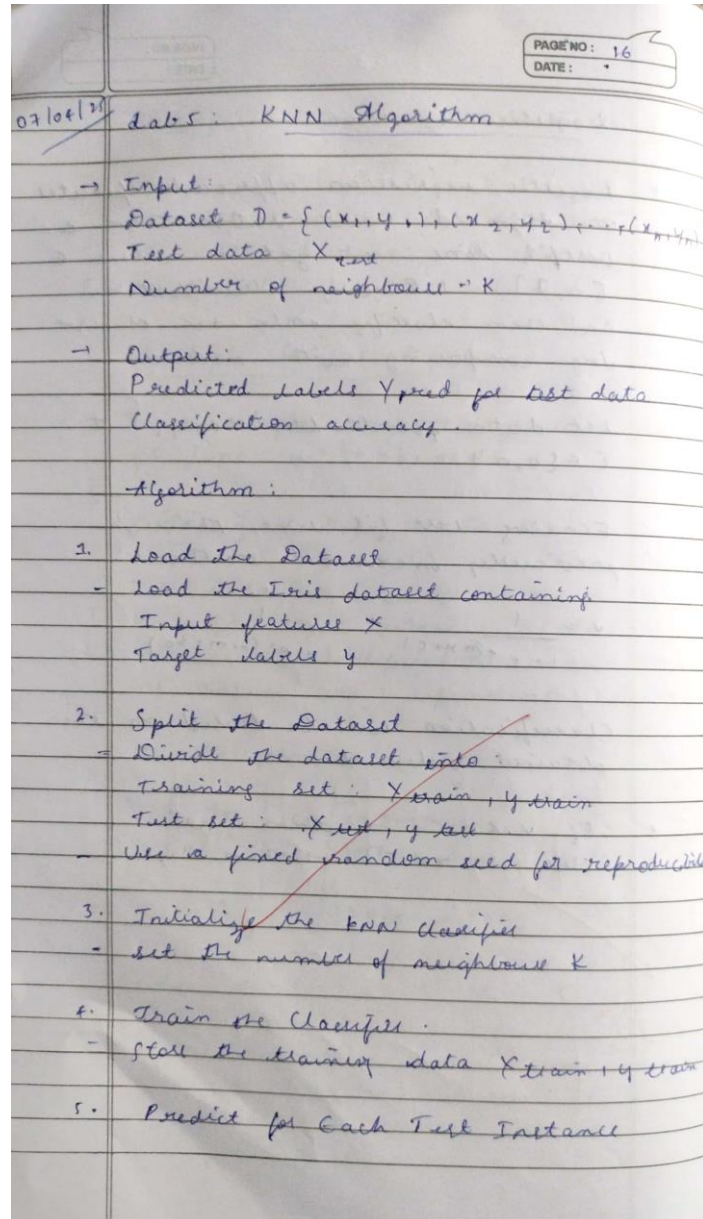 PAGE NO: 16
DATE:
07/04/25
Lab 5: KNN Algorithm
→ Input:
Dataset D = {(x1, y1), (x2, y2), ..., (xn, yn)
Test data Xtest
Number of neighbours = K
→ Output:
Predicted labels Ypred for test data
Classification accuracy.
Algorithm:
1. Load the Dataset
- Load the Iris dataset containing
Input features X
Target labels y
2. Split the Dataset
- Divide the dataset into:
Training set: X train, y train
Test set: X test, y test
- Use a fixed random seed for
3. Initialize the KNN Classifier
- set the number of neighbours K
4. Train the Classifier.
- Store the training data X train, y train
5. Predict for Each Test Instance